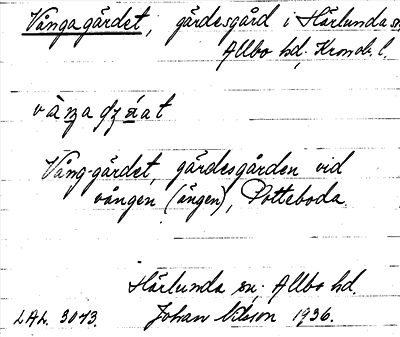 Vångagärdet, gärdesgård i Härlunda sn.
Allbo hd, Kronob. l.
Vång-gärdet, gärdesgården vid
vången (ängen), Potteboda.
Härlunda sn, Allbo hd.
LAL. 3073. Johan Nilsson 1936.